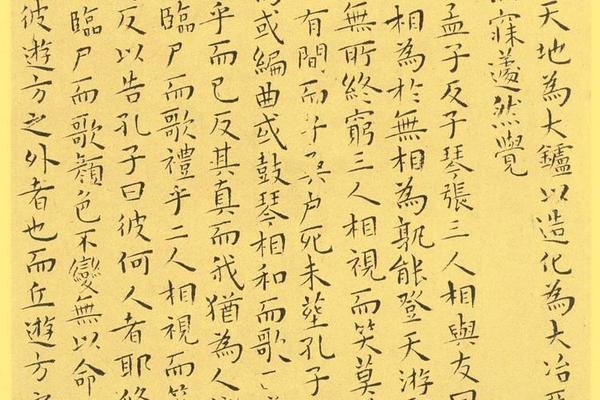 天地為大鑪以造化為大冶
寐蘧然覺
孟子反子琴張三人相與友曰
相為於無相為孰能登天游
無所終窮三人相視而笑莫
有間而子桑户死未葬孔子
或編曲或鼓琴相和而歌
乎而已反其真而我猶為人
臨尸而歌禮乎二人相視而笑
反以告孔子曰彼何人者耶
臨尸而歌顏色不變無以命
彼遊方之外者也而丘遊方